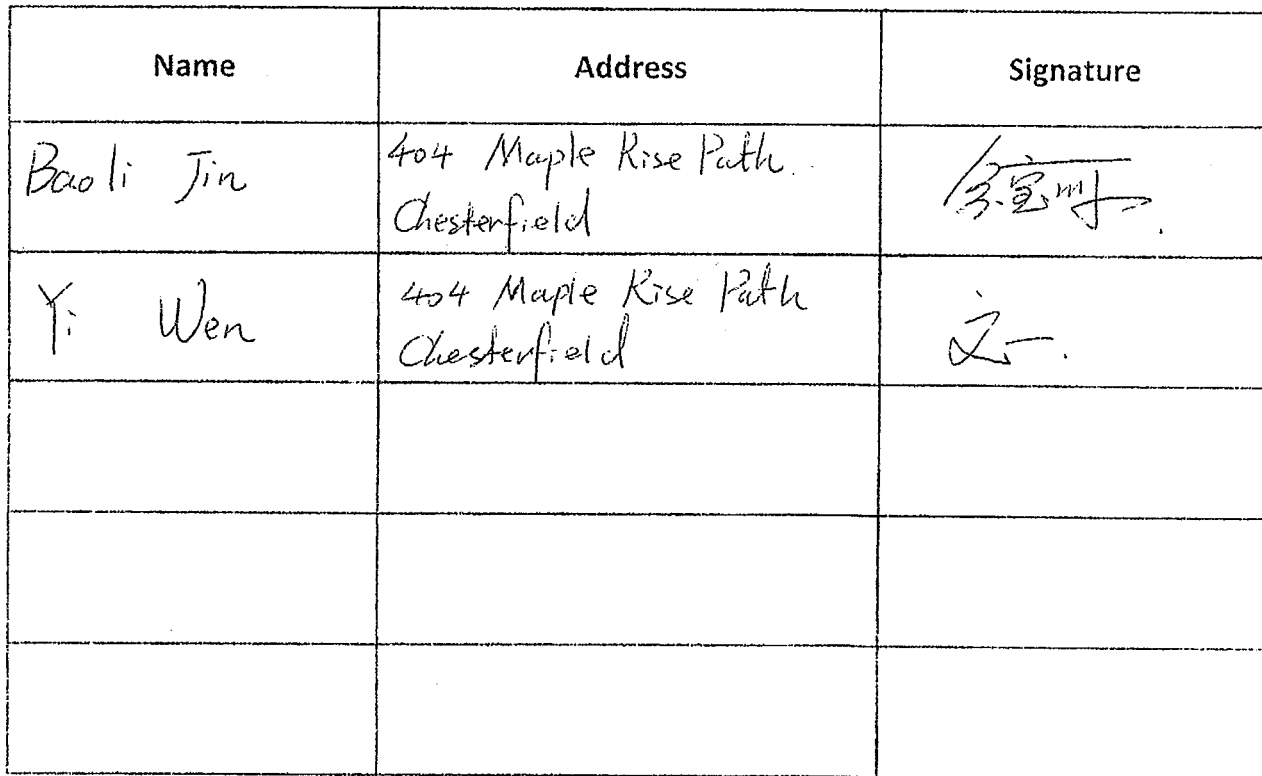 Name Address Signature
Baoli Jin
404 Maple Rise Path.
Chesterfield
Yi Wen
404 Maple Rise Path
Chesterfield
文一.